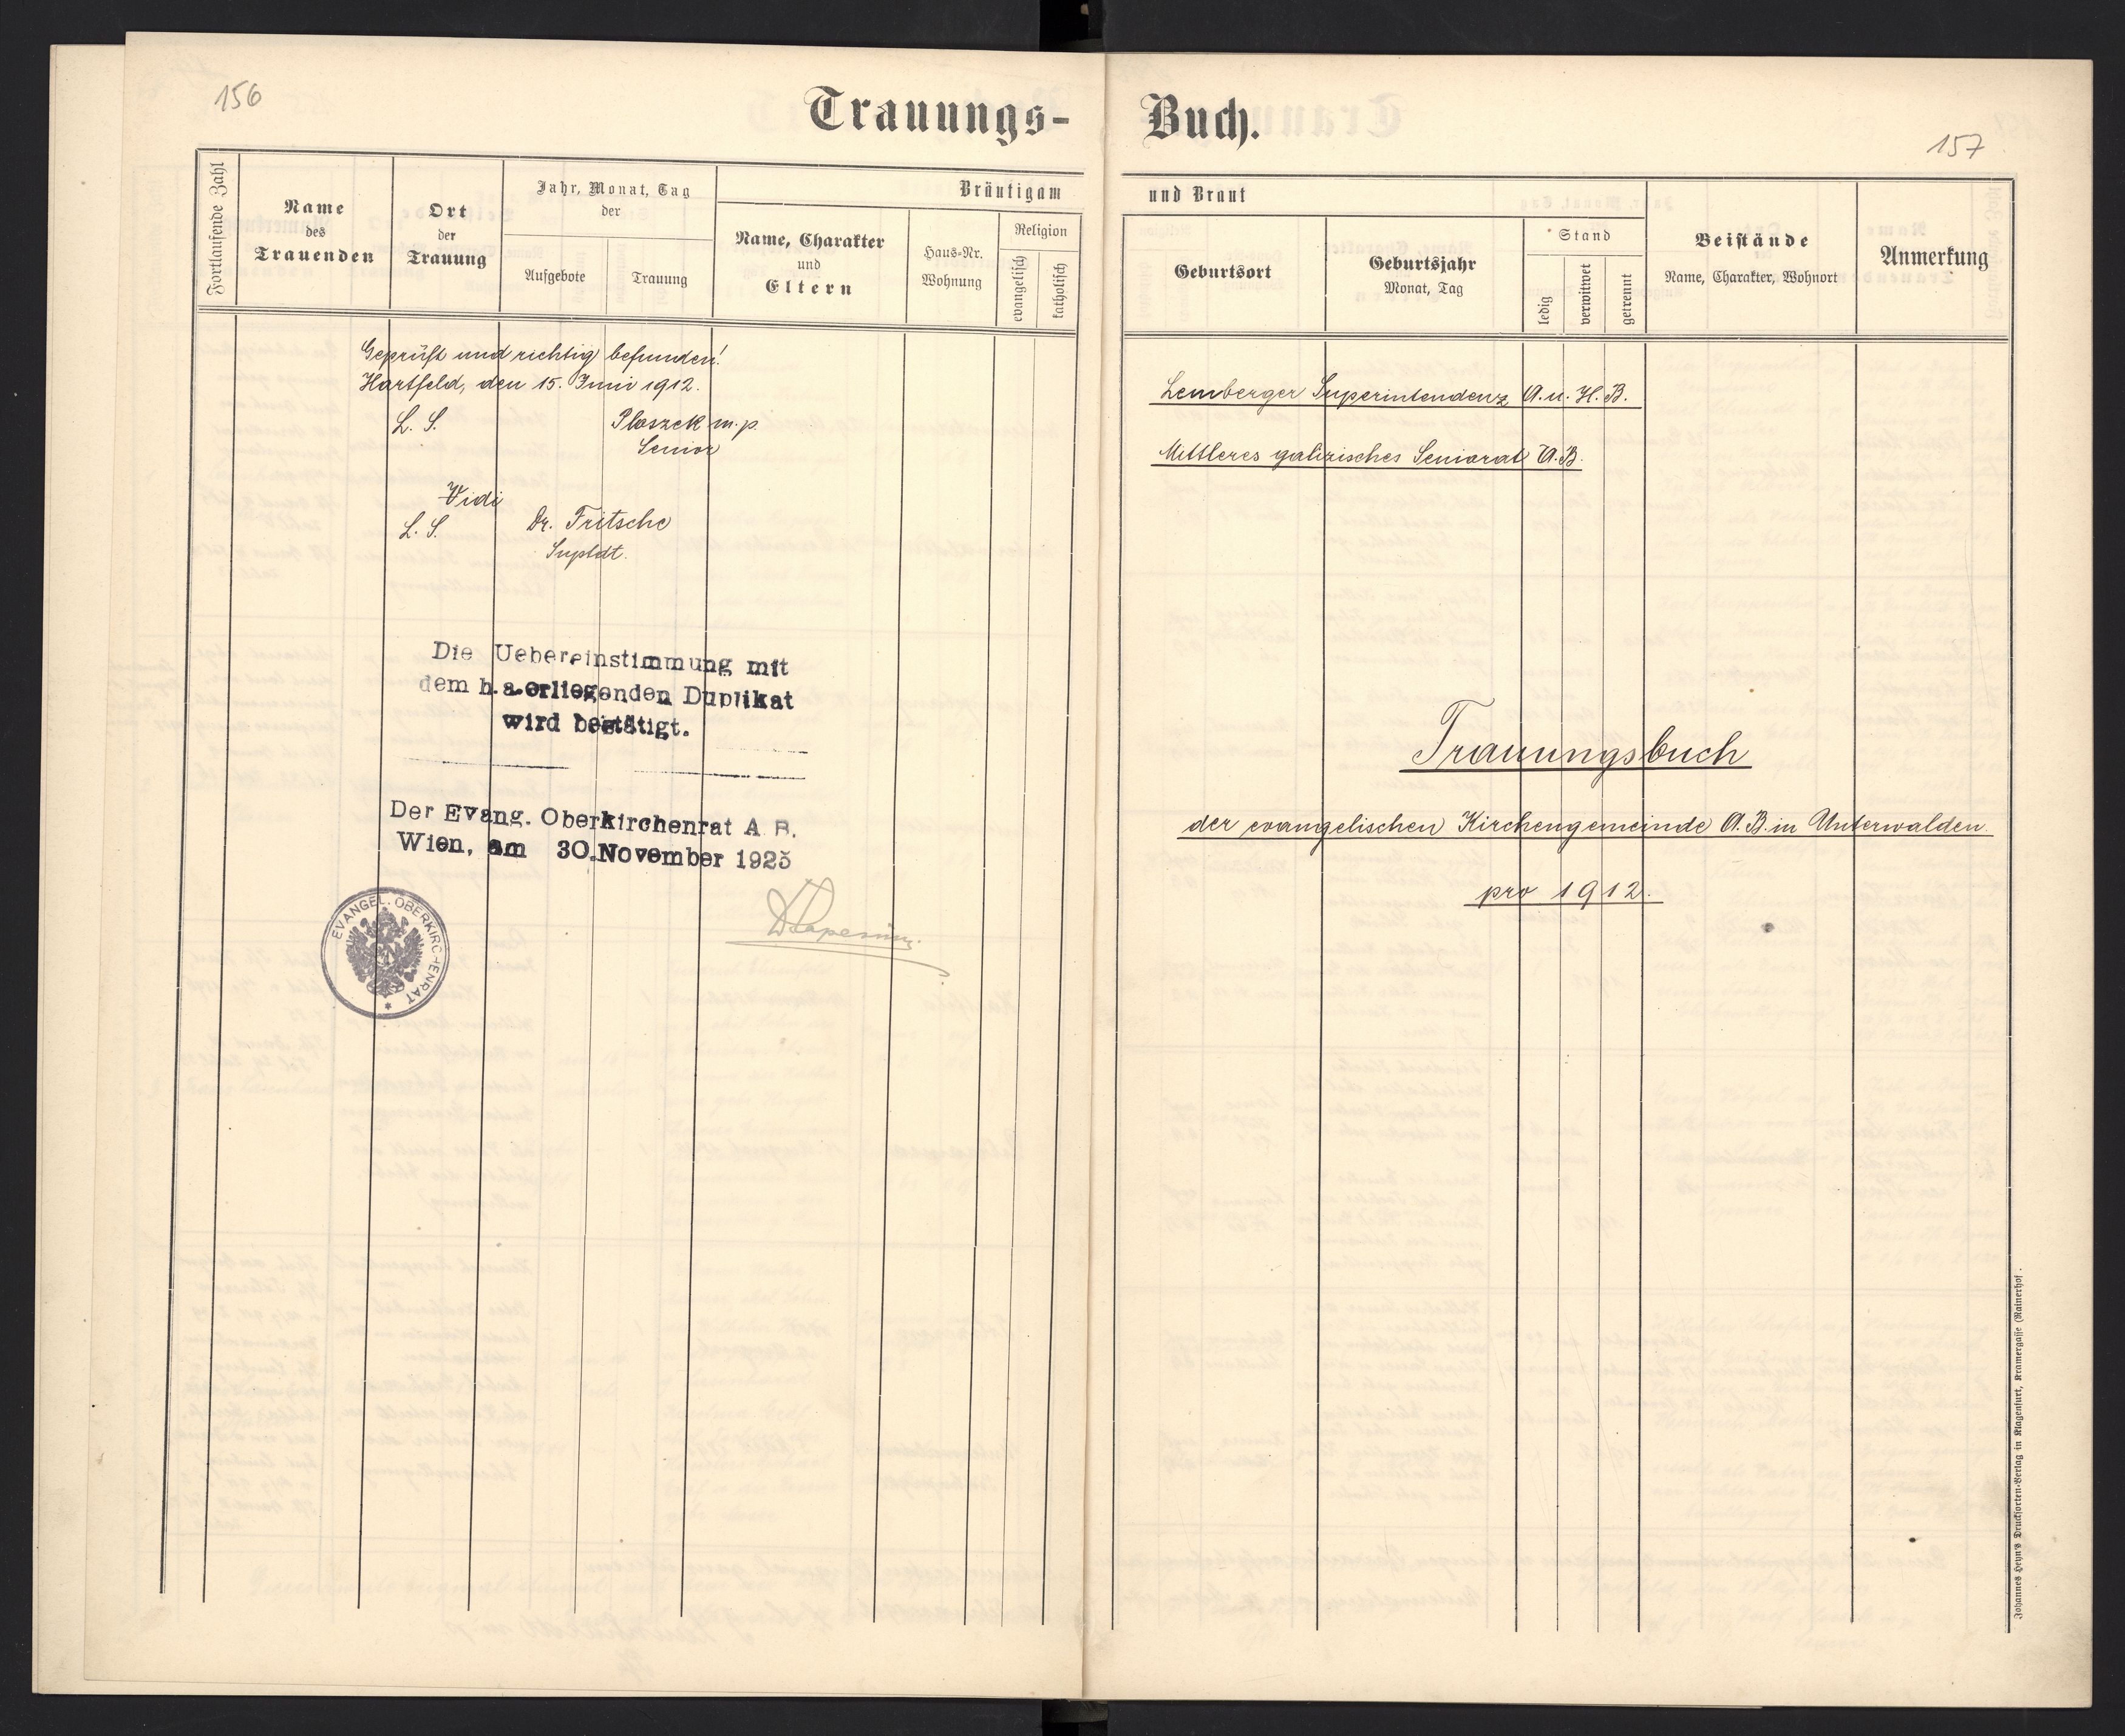 156
Trauungs-
Fortlaufende Zahl
Name
des
Trauenden
Ort
der
Trauung
Jahr, Monat, Tag
der
Aufgebote
Trauung
Bräutigam
Name, Charakter
und
Eltern
Haus-Nr.
Wohnung
Religion
evangelisch
katholisch
Geprüft und richtig befunden!
Hartfeld, den 15. Juni 1912.
L. S. Ploszek m. p.
Senior
Vidi
L. S. Dr. Fritsche
Supldt.
Die Uebereinstimmung mit
dem h.a.erliegenden Duplikat
wird bestätigt.
Der Evang. Oberkirchenrat A. B.
Wien, am 30. November 1925
EVANGEL. OBERKIRCHENRAT
Buch.
157
und Braut
Geburtsort
Geburtsjahr
Monat, Tag
Stand
ledig
verwitwet
getrennt
Beistände
Name, Charakter, Wohnort
Anmerkung
Lemberger Superintendenz A. u. H. B.
Mittleres galizisches Seniorat A. B.
Trauungsbuch
der evangelischen Kirchengemeinde A. B. in Unterwalden
pro 1912.
Johannes Heyn's Drucksorten-Verlag in Klagenfurt, Kramergasse (Rainerhof).